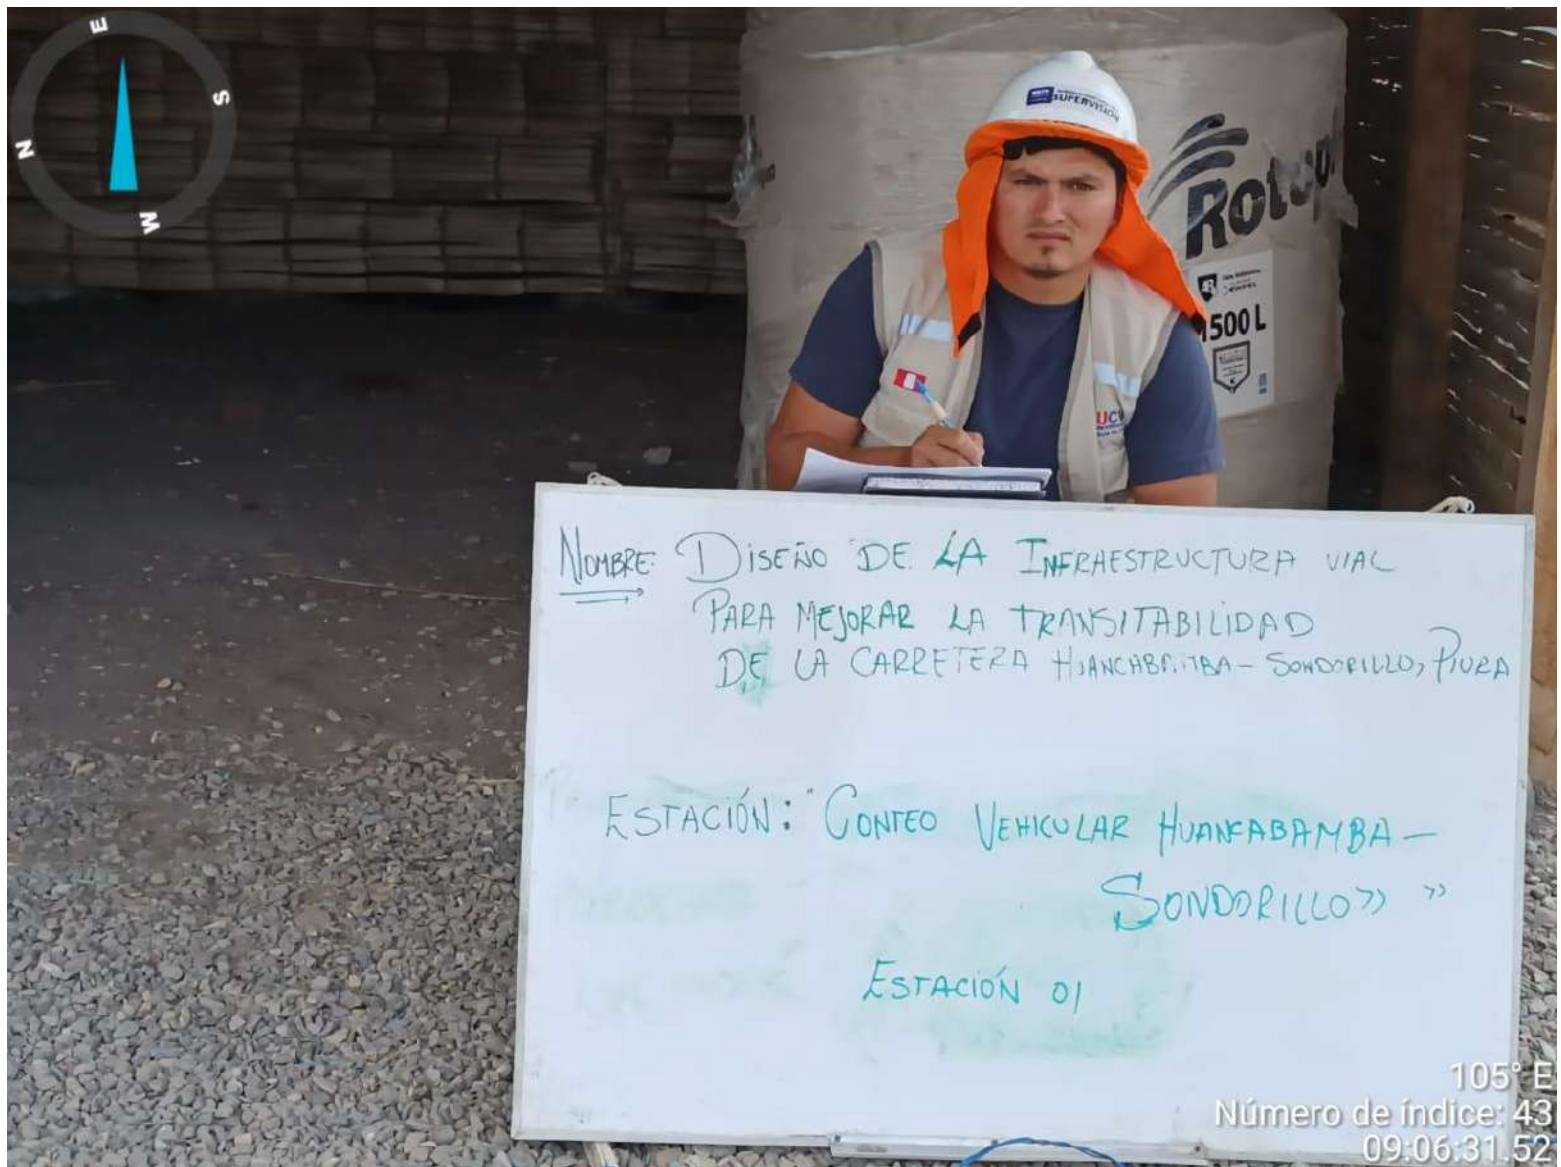 E
S
N
W
SUPERVISIÓN
Rotop
1500 L
UCV
NOMBRE: DISEÑO DE LA INFRAESTRUCTURA VIAL
PARA MEJORAR LA TRANSITABILIDAD
DE LA CARRETERA HUANCABAMBA – SONDORILLO, PIURA
ESTACIÓN: "CONTEO VEHICULAR HUANCABAMBA –
SONDORILLO» »
ESTACIÓN 01
105° E
Número de índice: 43
09:06:31.52